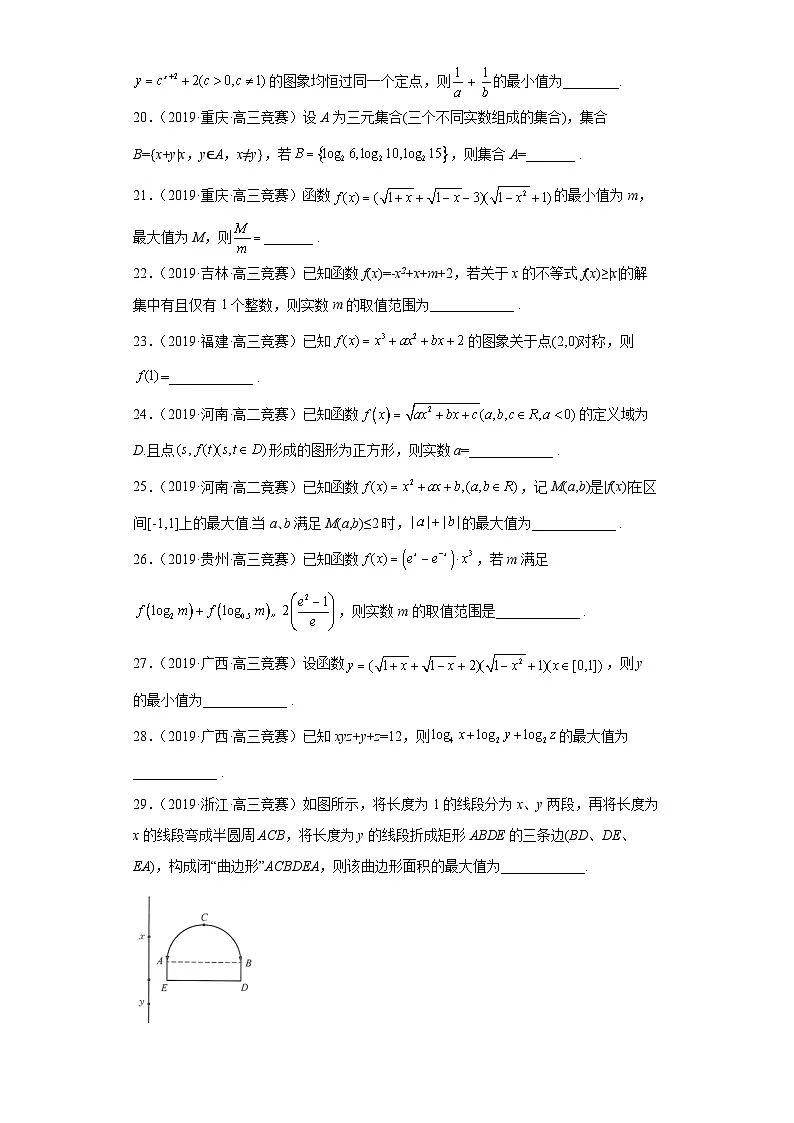 y = c^{x+2} + 2(c > 0, c ≠ 1) 的图象均恒过同一个定点，则 1/a + 1/b 的最小值为________.
20.（2019·重庆·高三竞赛）设 A 为三元集合(三个不同实数组成的集合)，集合
B={x+y|x，y∈A，x≠y}，若 B = {log₂ 6, log₂ 10, log₂ 15}，则集合 A=_______ .
21.（2019·重庆·高三竞赛）函数 f(x) = (√(1+x) + √(1−x) − 3)(√(1−x²) + 1) 的最小值为 m，
最大值为 M，则 M/m = _______ .
22.（2019·吉林·高三竞赛）已知函数 f(x)=-x²+x+m+2，若关于 x 的不等式 f(x)≥|x|的解
集中有且仅有 1 个整数，则实数 m 的取值范围为____________ .
23.（2019·福建·高三竞赛）已知 f(x) = x³ + ax² + bx + 2 的图象关于点(2,0)对称，则
f(1) =____________ .
24.（2019·河南·高二竞赛）已知函数 f(x) = √(ax² + bx + c) (a, b, c ∈ R, a < 0) 的定义域为
D.且点 (s, f(t)(s,t ∈ D) 形成的图形为正方形，则实数 a=____________ .
25.（2019·河南·高二竞赛）已知函数 f(x) = x² + ax + b,(a,b ∈ R)，记 M(a,b)是|f(x)|在区
间[-1,1]上的最大值.当 a、b 满足 M(a,b)≤2 时，|a|+|b|的最大值为____________ .
26.（2019·贵州·高三竞赛）已知函数 f(x) = (e^x − e^{−x})·x³，若 m 满足
f(log₂ m) + f(log₀.₅ m)„ 2((e² − 1)/e)，则实数 m 的取值范围是____________ .
27.（2019·广西·高三竞赛）设函数 y = (√(1+x) + √(1−x) + 2)(√(1−x²) + 1)(x ∈ [0,1])，则 y
的最小值为____________ .
28.（2019·广西·高三竞赛）已知 xyz+y+z=12，则 log₄ x + log₂ y + log₂ z 的最大值为
____________ .
29.（2019·浙江·高三竞赛）如图所示，将长度为 1 的线段分为 x、y 两段，再将长度为
x 的线段弯成半圆周 ACB，将长度为 y 的线段折成矩形 ABDE 的三条边(BD、DE、
EA)，构成闭“曲边形”ACBDEA，则该曲边形面积的最大值为____________.
C
x
A B
E D
y